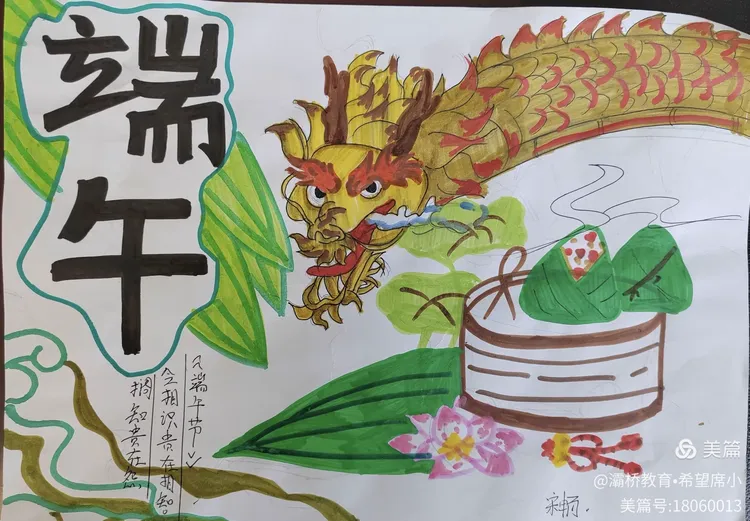 端午
端午节
今相识贵在相知
相知贵在
美篇
@灞桥教育•希望席小
美篇号:18060013